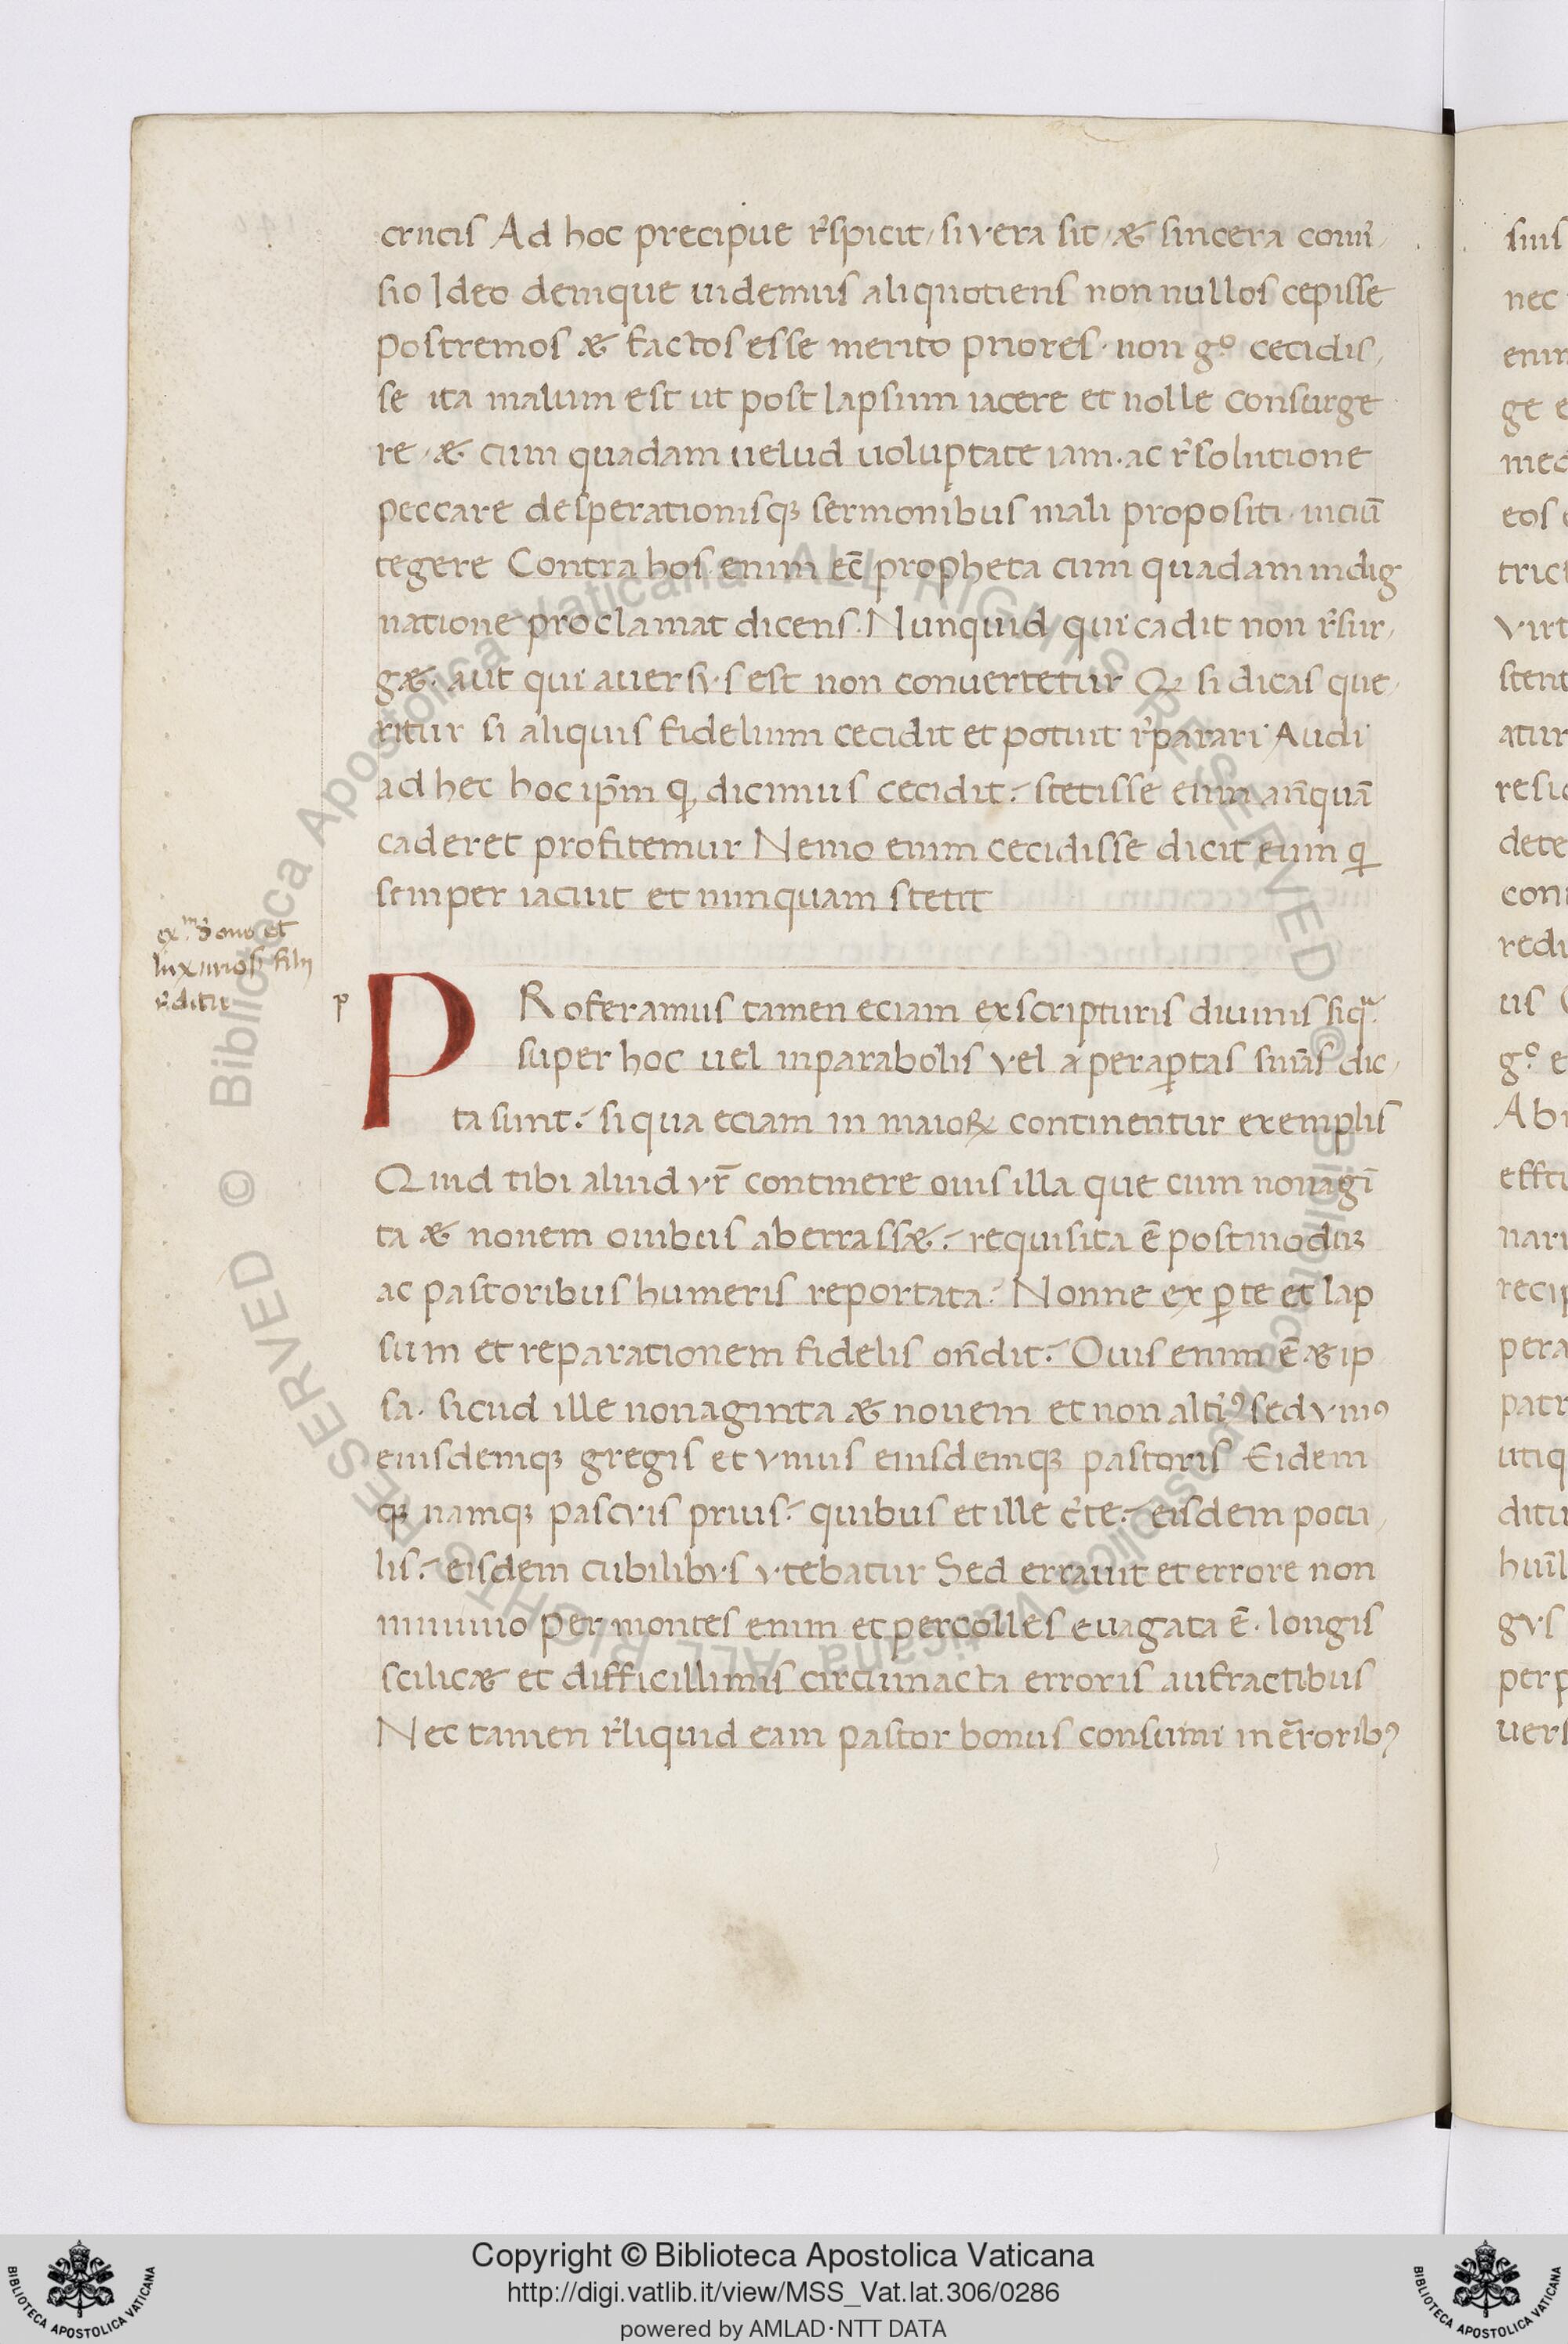 crucis Ad hoc precipue r̉spicit, si vera sit, & sincera conũ,
sio Ideo denique uidemus aliquotiens non nullos cepisse
postremos & factos esse merito priores· non g̊ cecidis,
se ita malum est ut post lapsum iacere et nolle consurge
re · & cum quadam uelud uoluptate iam· ac r̉solutione
peccare desperationisqꝫ sermonibus mali propositi · uiciũ
tegere Contra hos enim ec̃ propheta cum quadam indig
natione proclamat dicens· Nunquid qui cadit non r̉sur,
g&· aut qui aversvs est non convertetur Qꝫ si dicas que,
ritur si aliquis fidelium cecidit et potuit r̉parari Audi
ad hec hoc ip̃m q̨ dicimus cecidit· stetisse eum añquã
caderet profitemur Nemo enim cecidisse dicit eum q̨
semper iacuit et nunquam stetit
ex.m boni et
luxuriosi filij
r̉ditu
p
PRoferamus tamen eciam ex scripturis diuinis siqͣ
super hoc uel in parabolis vel aper aptas sniãs dic,
ta sunt· si qua eciam in maioꝝ continentur exemplis
Quid tibi aliud vr̃ continere ouis illa que cum nonagĩ
ta & nouem ouibus aberrass&· requisita ẽ postmoduꝫ
ac pastoribus humeris reportata· Nonne ex ꝑte et lap
sum et reparationem fidelis oñdit· Ouis enim ẽ & ip
sa· sicud ille nonaginta & nouem et non alti᷒ꝰ sed vniꝰ
eiusdemqꝫ gregis et vnius eiusdemqꝫ pastoris Eidem
qꝫ namqꝫ pascvis prius· quibus et ille c̉te· eisdem pocu,
lis· eisdem cubilibvs vtebatur Sed errauit et errore non
minimo per montes enim et per colles euagata ẽ· longis
scilic& et difficillimis circumacta erroris aufractibus
Nec tamen r̉liquid eam pastor bonus consumi in ẽrroribꝰ
sius
nec
enim
ge e
med
eos
trict
virt
stent
atur
resid
dete
con
redi
us
g̊ e
Abi
effci
nari
recip
pera
patr
utiq
ditu
huil̃
gvs
perp
uers
Copyright © Biblioteca Apostolica Vaticana
http://digi.vatlib.it/view/MSS_Vat.lat.306/0286
powered by AMLAD·NTT DATA